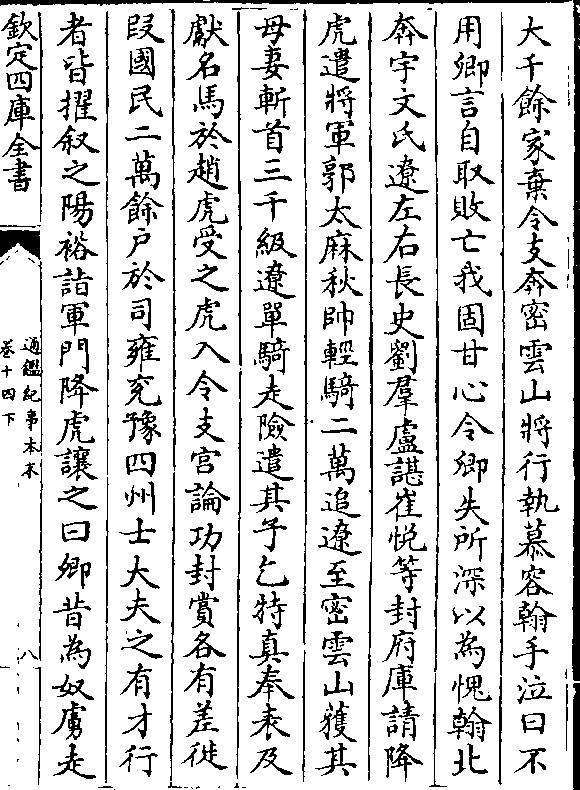 大千餘家棄令支奔密雲山將行執慕容翰手泣曰不
用卿言自取敗亡我固甘心令卿失所深以為愧翰北
奔宇文氏遼左右長史劉羣盧諶崔悅等封府庫請降
虎遣將軍郭太麻秋帥輕騎二萬追遼至密雲山獲其
母妻斬首三千級遼單騎走險遣其子乞特真奉表及
獻名馬於趙虎受之虎入令支宮論功封賞各有差徙
段國民二萬餘戶於司雍兖豫四州士大夫之有才行
者皆擢叙之陽裕詣軍門降虎讓之曰卿昔為奴虜走
欽定四庫全書
通鑑紀事本末
卷十四下
八